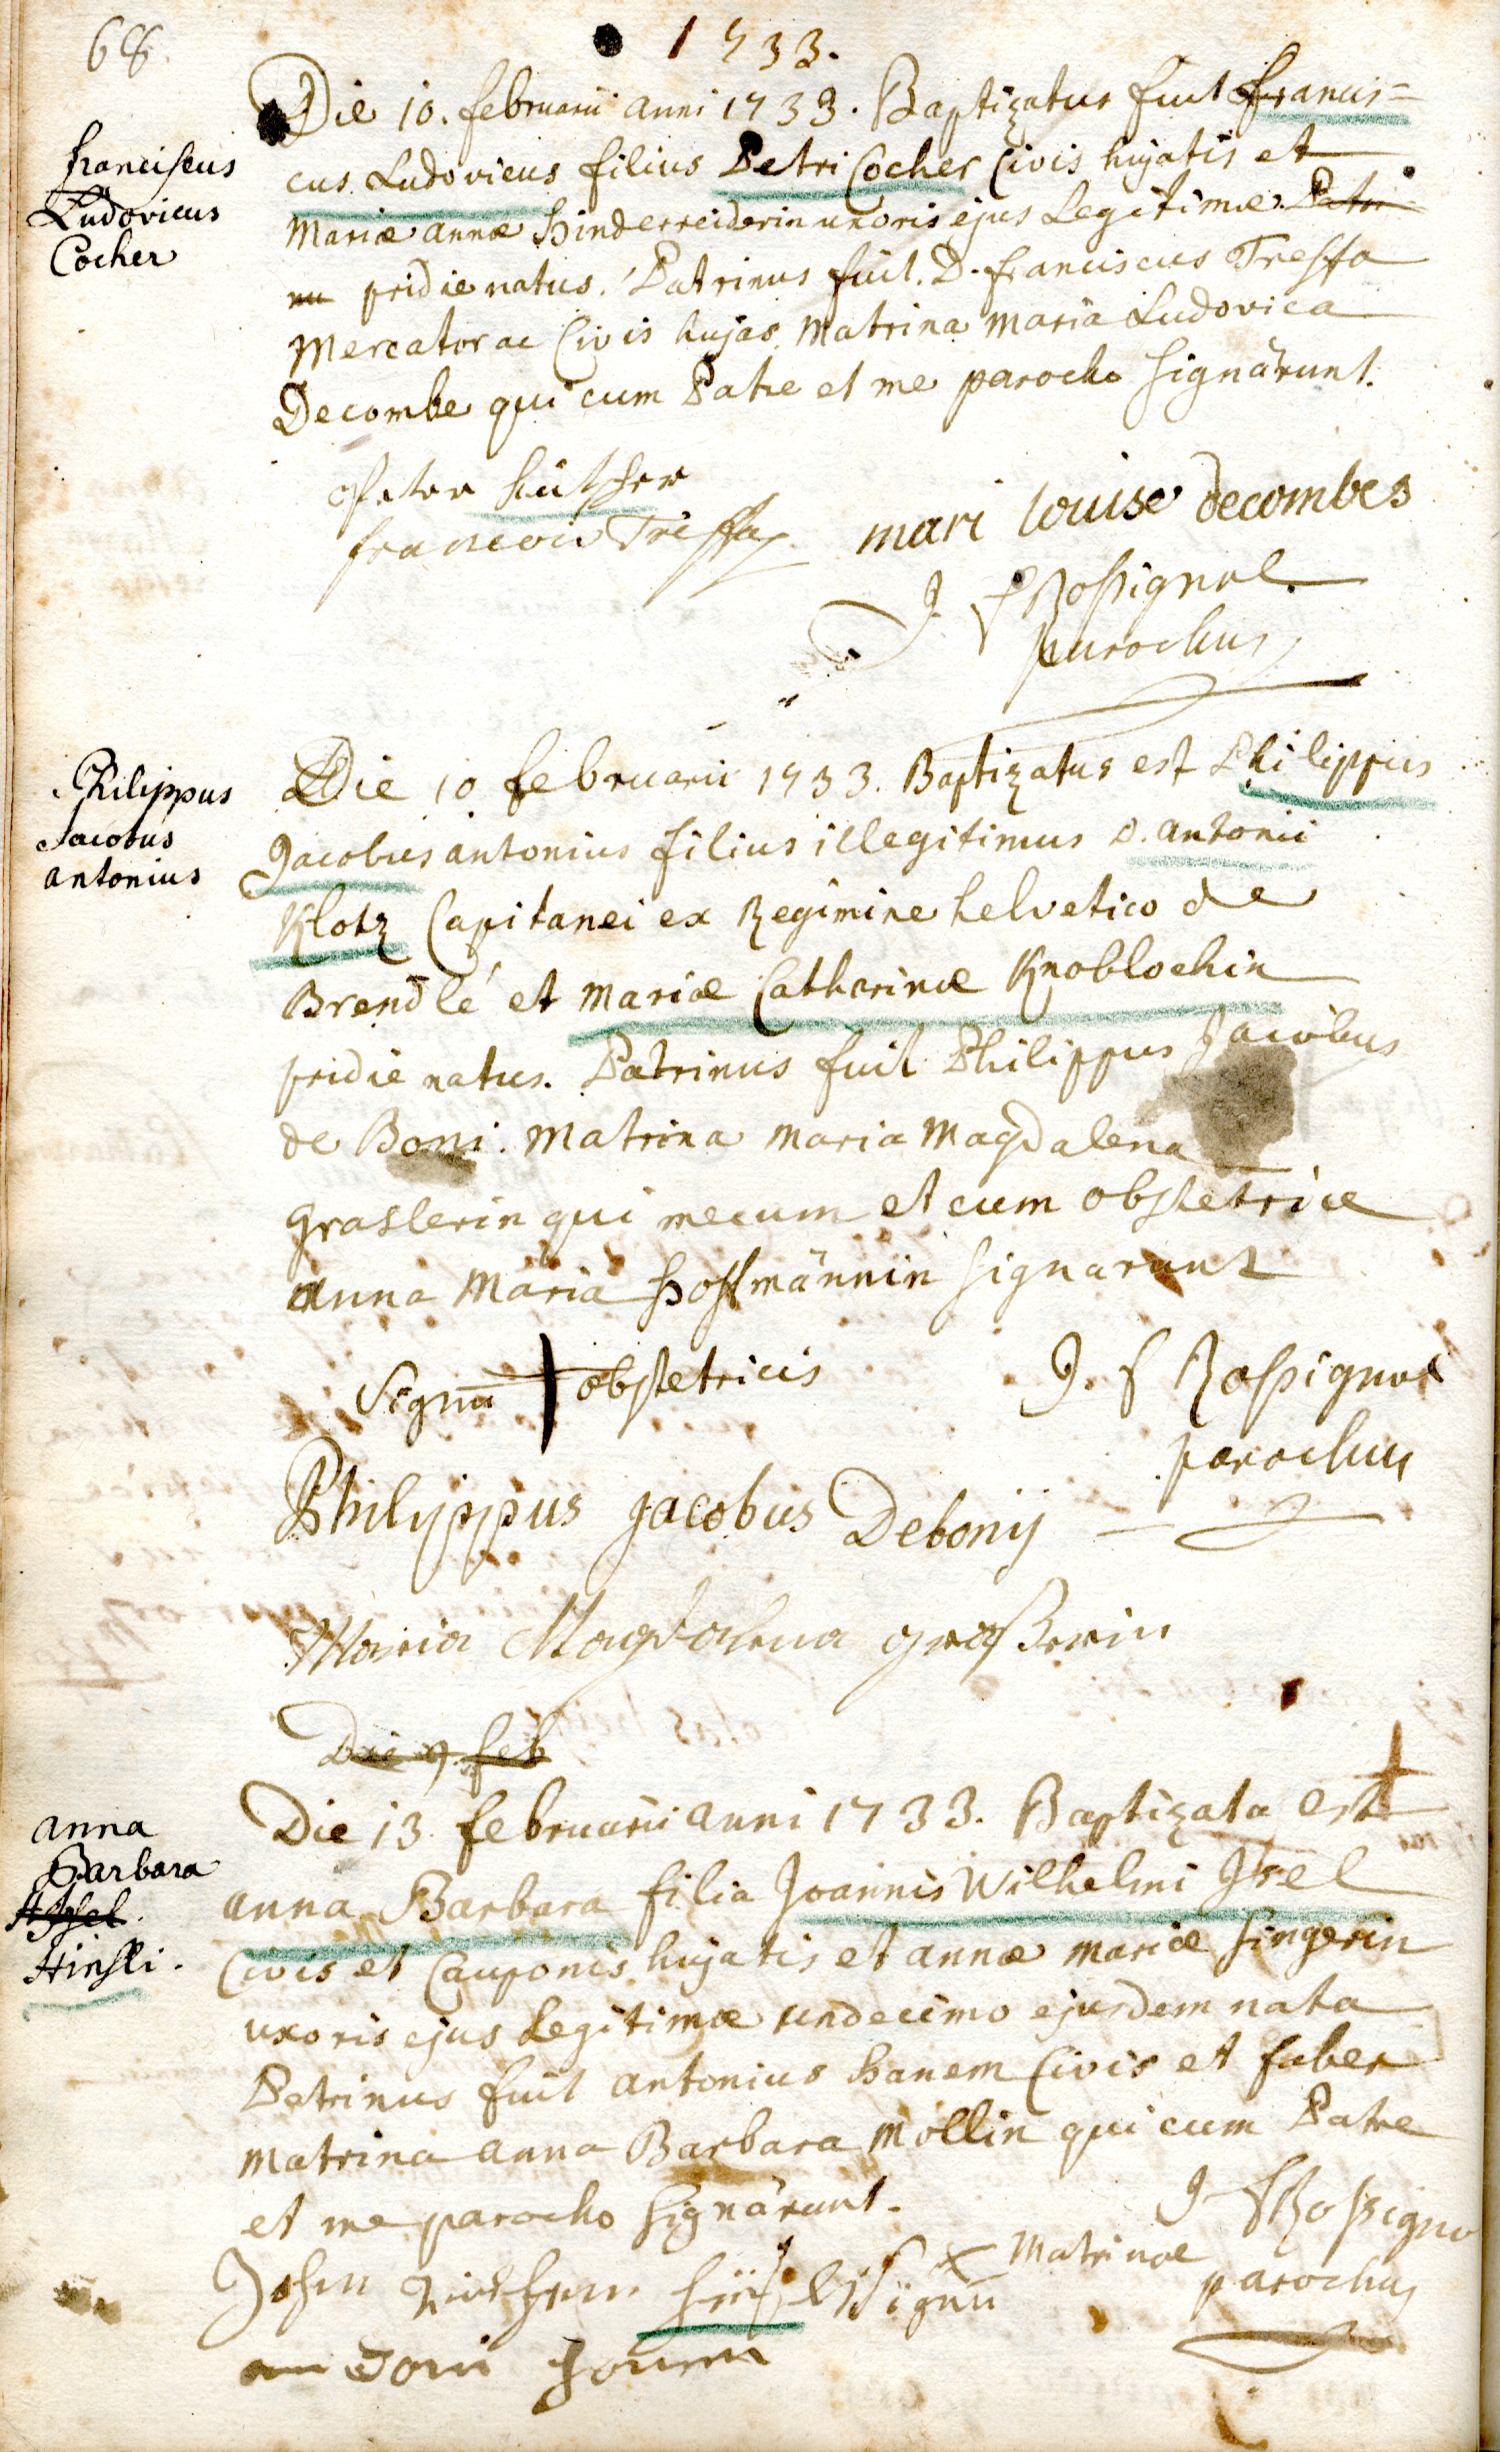 68.
1733.
Die 10. februarii anni 1733. Baptizatus fuit francis=
cus Ludovicus filius Petri Cocher Civis hujatis et
Mariæ annæ Hinderreiderin uxoris ejus Legitimæ. Patri
nu pridie natus. Patrinus fuit D. franciscus Treffa
Mercator ac Civis hujas, Matrina Maria Ludovica
Decombe qui cum Patre et me parocho signârunt.
franciscus
Ludovicus
Cocher
Peter
francoi Treffa
mari louise decombes
J f Rossignol
parochus
Die 10 februarii 1733. Baptizatus est Philippus
Jacobus antonius filius illegitimus D. antonii
Klotz Capitanei ex Regimine helvetico de
Brendlé et Mariæ Catharinæ Knoblochin
pridie natus. Patrinus fuit Philippus Jacobus
de Boni. Matrina Maria Magdalena
Graslerin qui mecum et cum obstetrice
anna Maria Hoffmännin signarunt
Philippus
Jacobus
antonius
Signu obstetricis
J. f Rossignol
parochus
Philyppus jacobus Debonij
Maria Magdalena
Die 9. feb
Die 13. februarii anni 1733. Baptizata est
anna Barbara filia Joannis Wilhelmi Isel
Civis et Cauponis hujatis et annæ Mariæ Singerin
uxoris ejus Legitimæ undecimo ejusdem nata
Petrinus fuit antonius Hanem Civis et faber
Matrina anna Barbara Mollin qui cum Patre
et me parocho signârunt.
anna
Barbara
Hinsli.
J f Rossigno
parochus
Johan
Signu Matrinæ